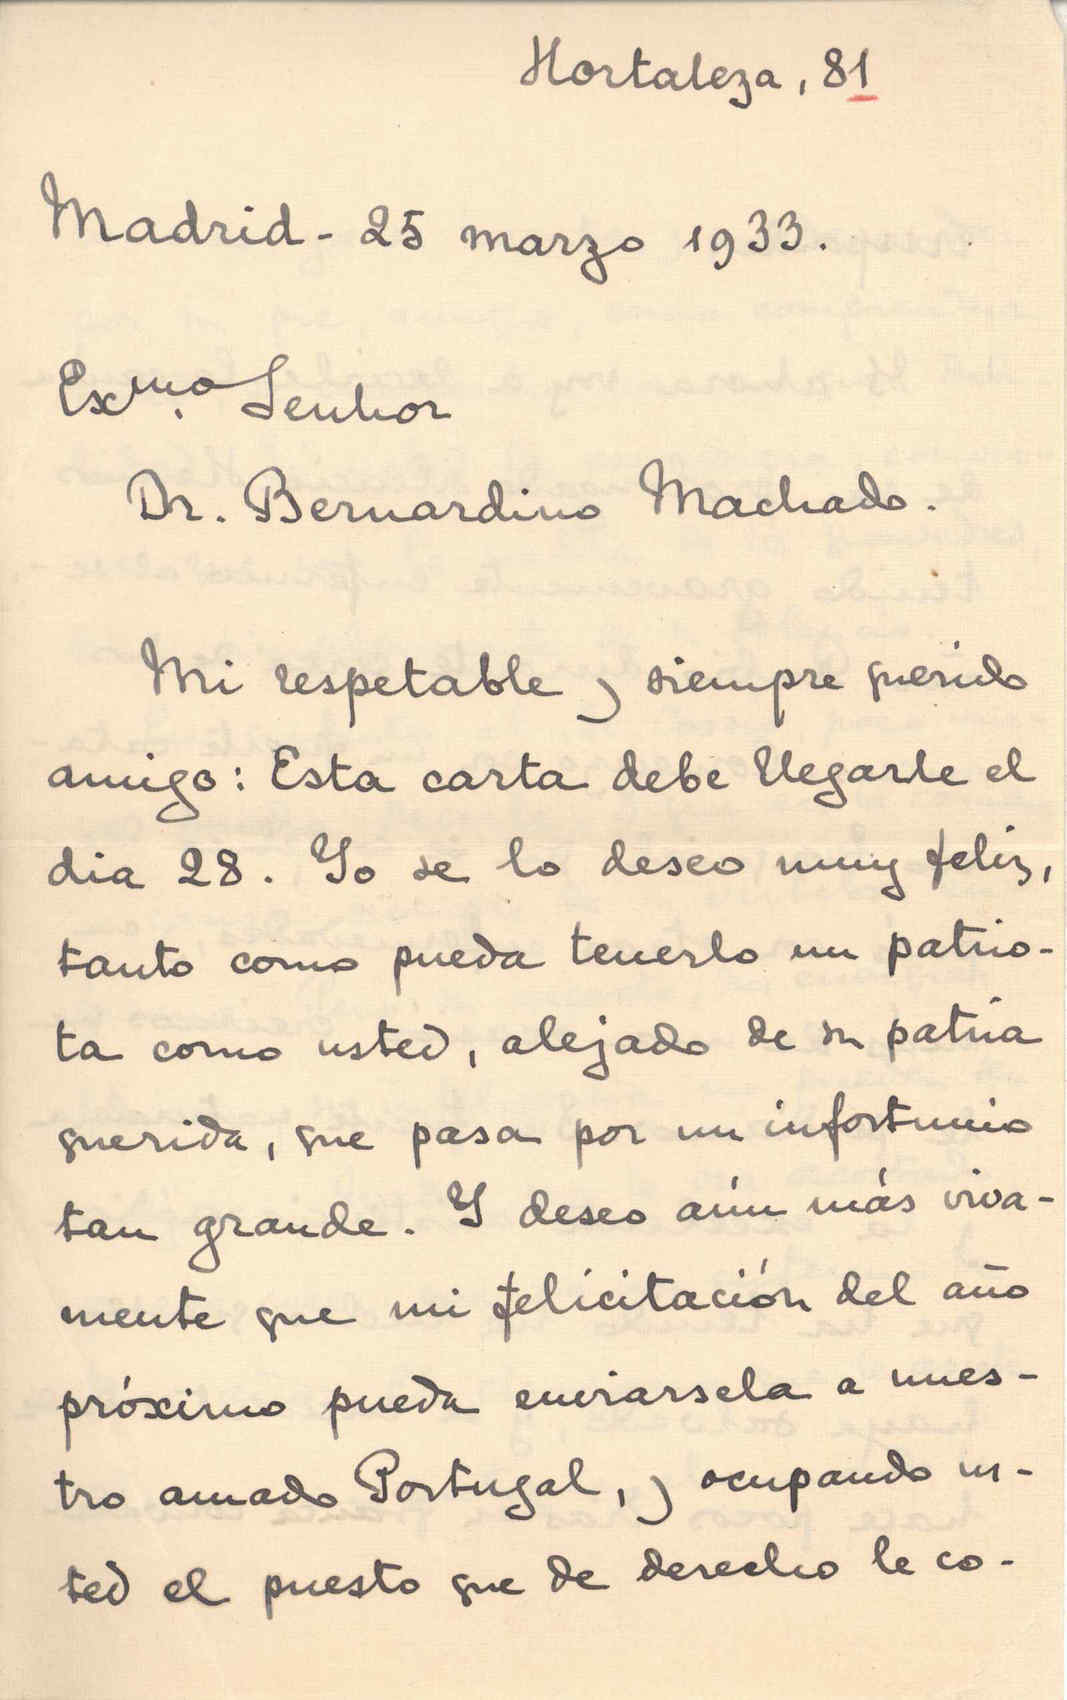 Hortaleza, 81
Madrid - 25 marzo 1933.
Exmo. Senhor
Dr. Bernardino Machado.
Mi respetable y siempre querido
amigo: Esta carta debe llegarle el
dia 28. Yo se lo deseo muy feliz,
tanto como pueda tenerlo un patrio-
ta como usted, alejado de su patria
querida, que pasa por un infortunio
tan grande. Y deseo aún más viva-
mente que mi felicitación del año
próximo pueda enviarsela a nues-
tro amado Portugal, y ocupando us-
ted el puesto que de derecho le co-